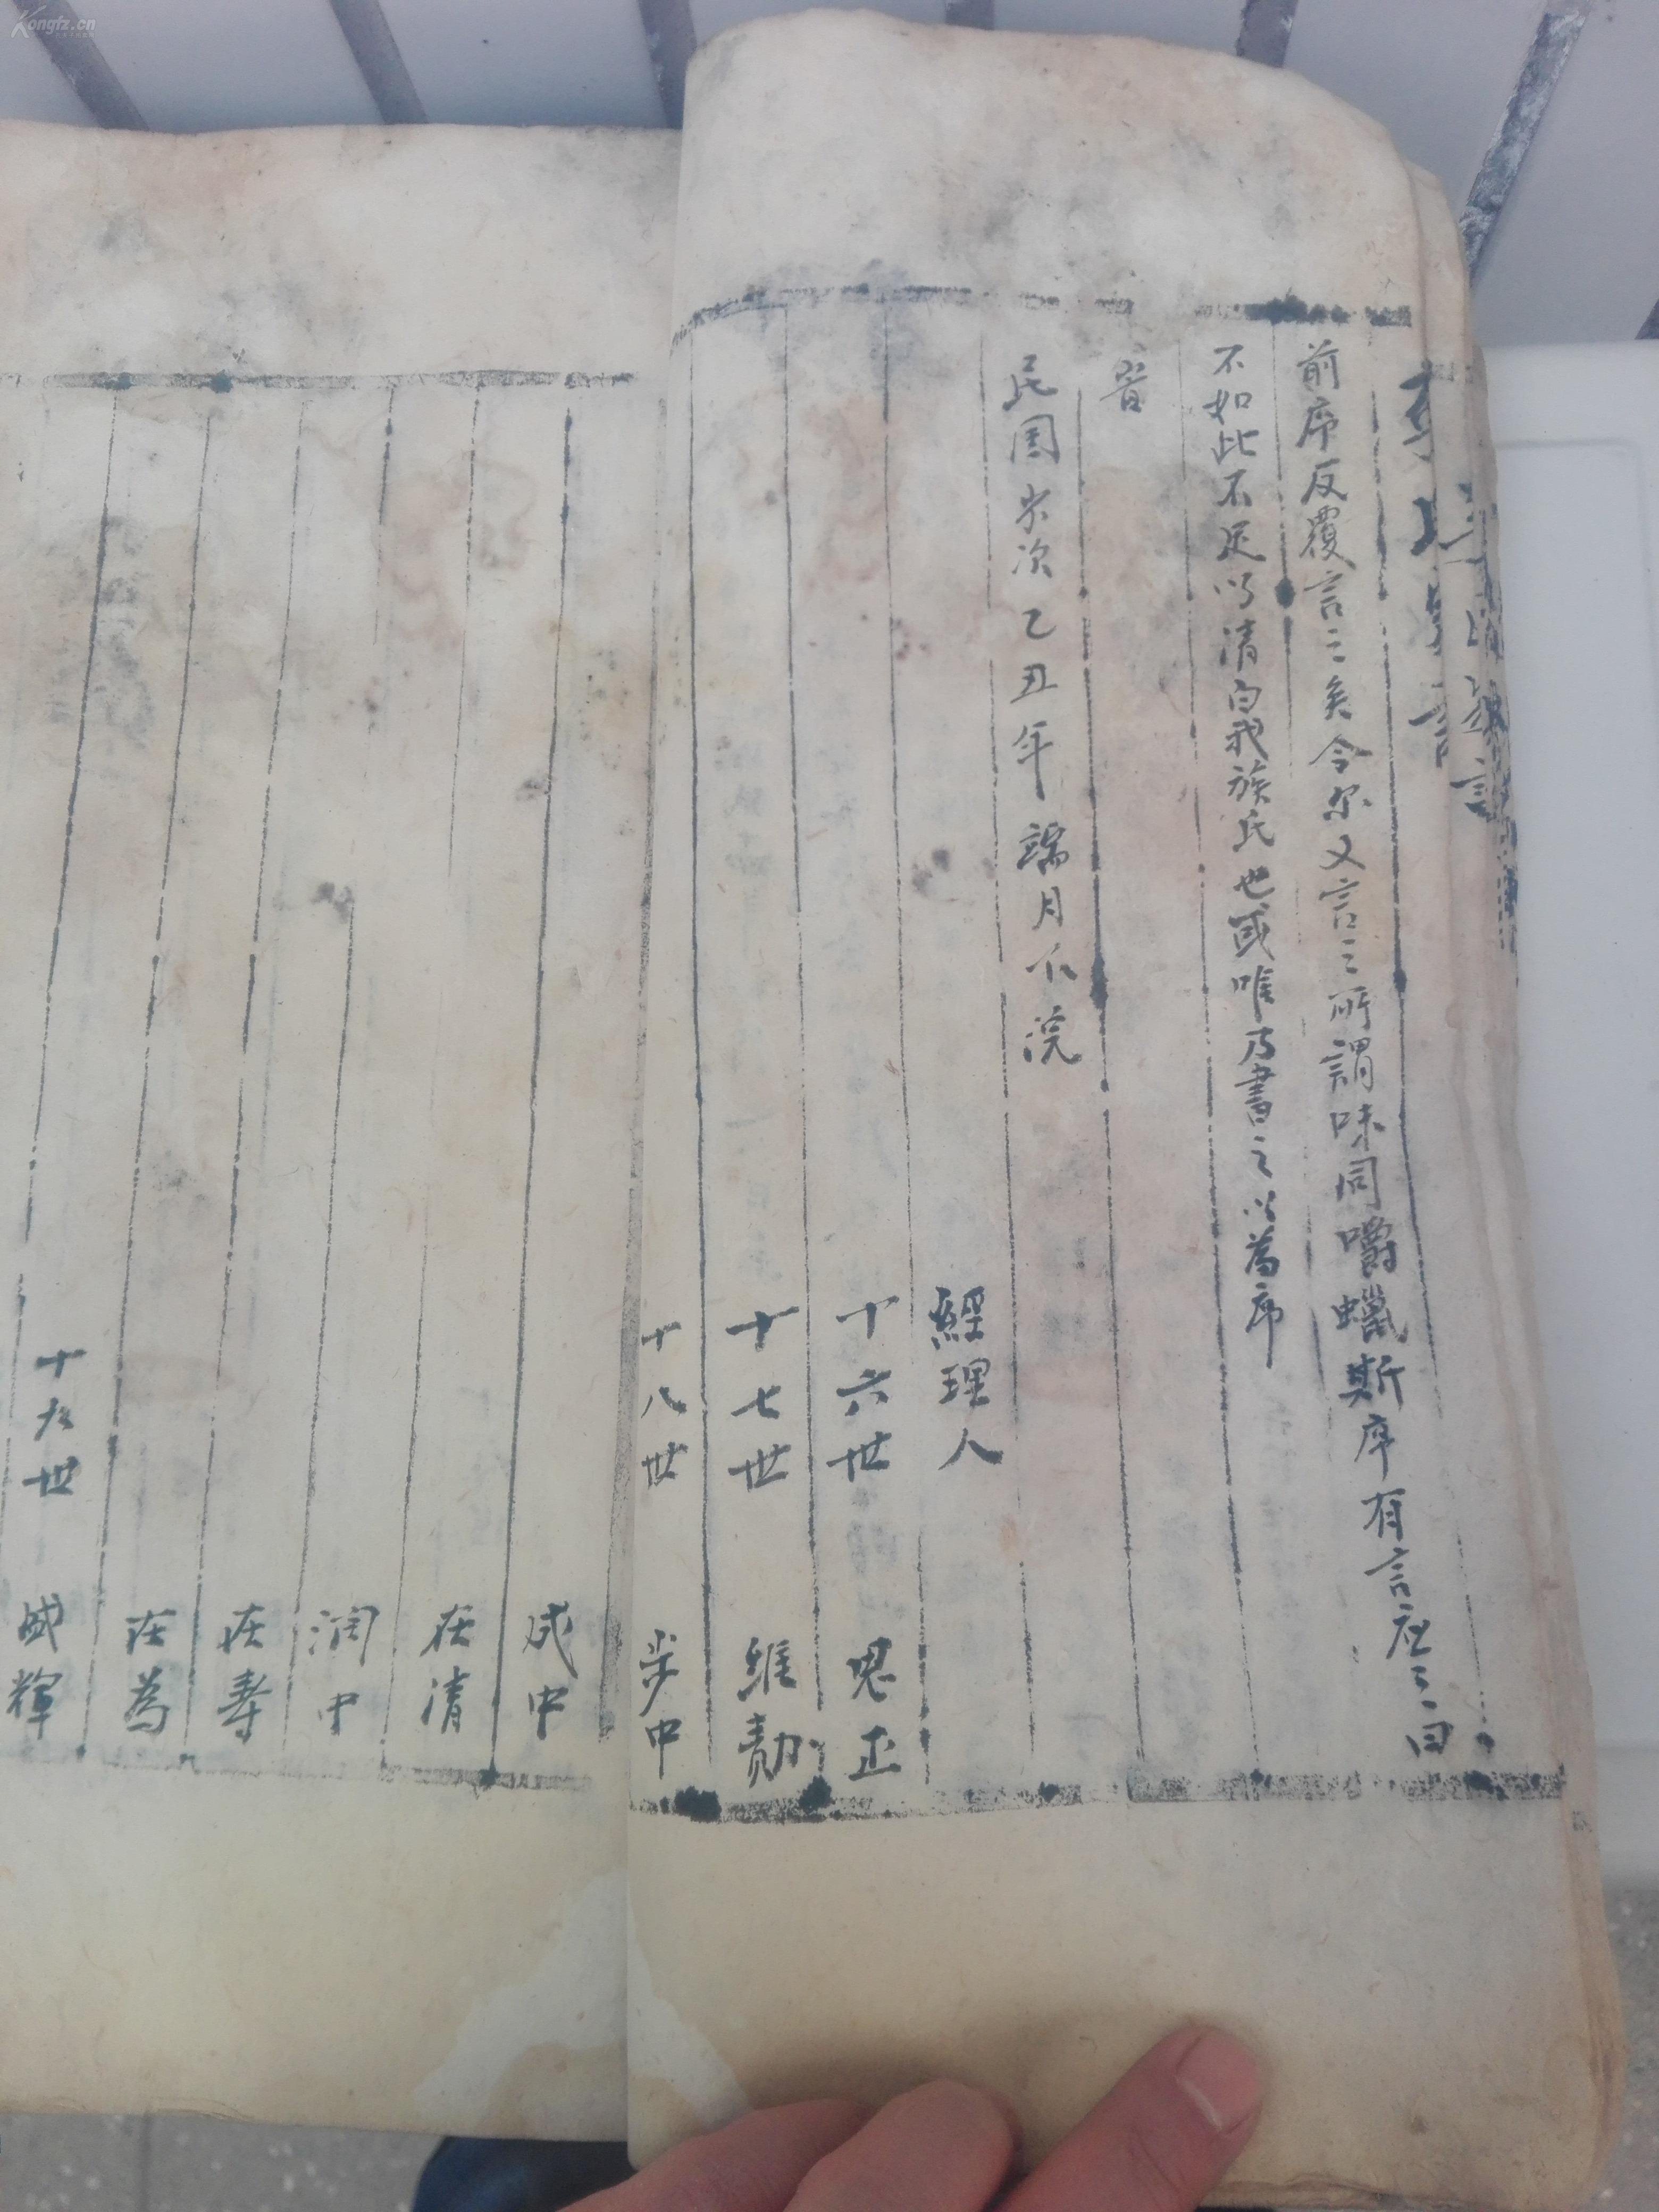 前序反覆言之矣今尔又言之所謂味同嚼蠟斯序有言应之曰
不如此不足以清白我族氏也或唯乃書之以為序
旹
民国歲次乙丑年端月下浣
經理人
十六世 思正
十七世 維勣
十八世 步中
成中
在清
潤中
在壽
在為
十九世 盛輝
Kongfz.cn